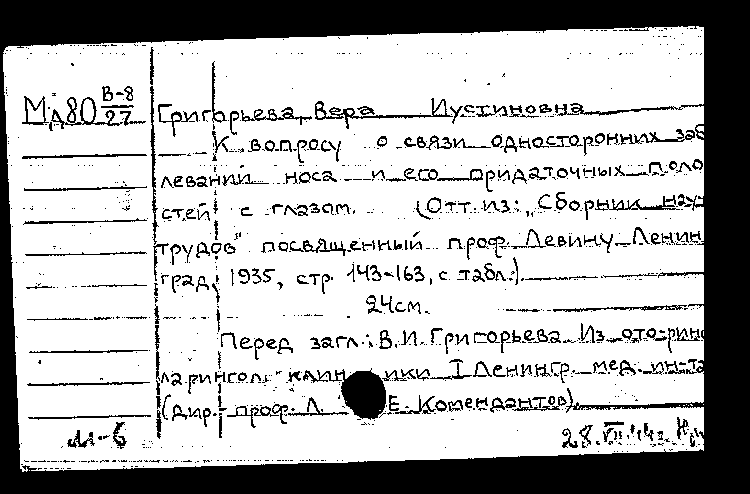 Мд80 В-8/27
Григорьева, Вера Иустиновна
К вопросу о связи односторонних заб
леваний носа и его придаточных поло
стей с глазом. (Отт. из: „Сборник науч
трудов" посвященный проф. Левину. Ленин
град, 1935, стр. 143-163, с табл.).
24см.
Перед загл.: В.И. Григорьева. Из ото-рино
ларингол. клиники I Ленингр. мед. ин-та
(дир.- проф. Л. Е. Комендантов).
28.VII.